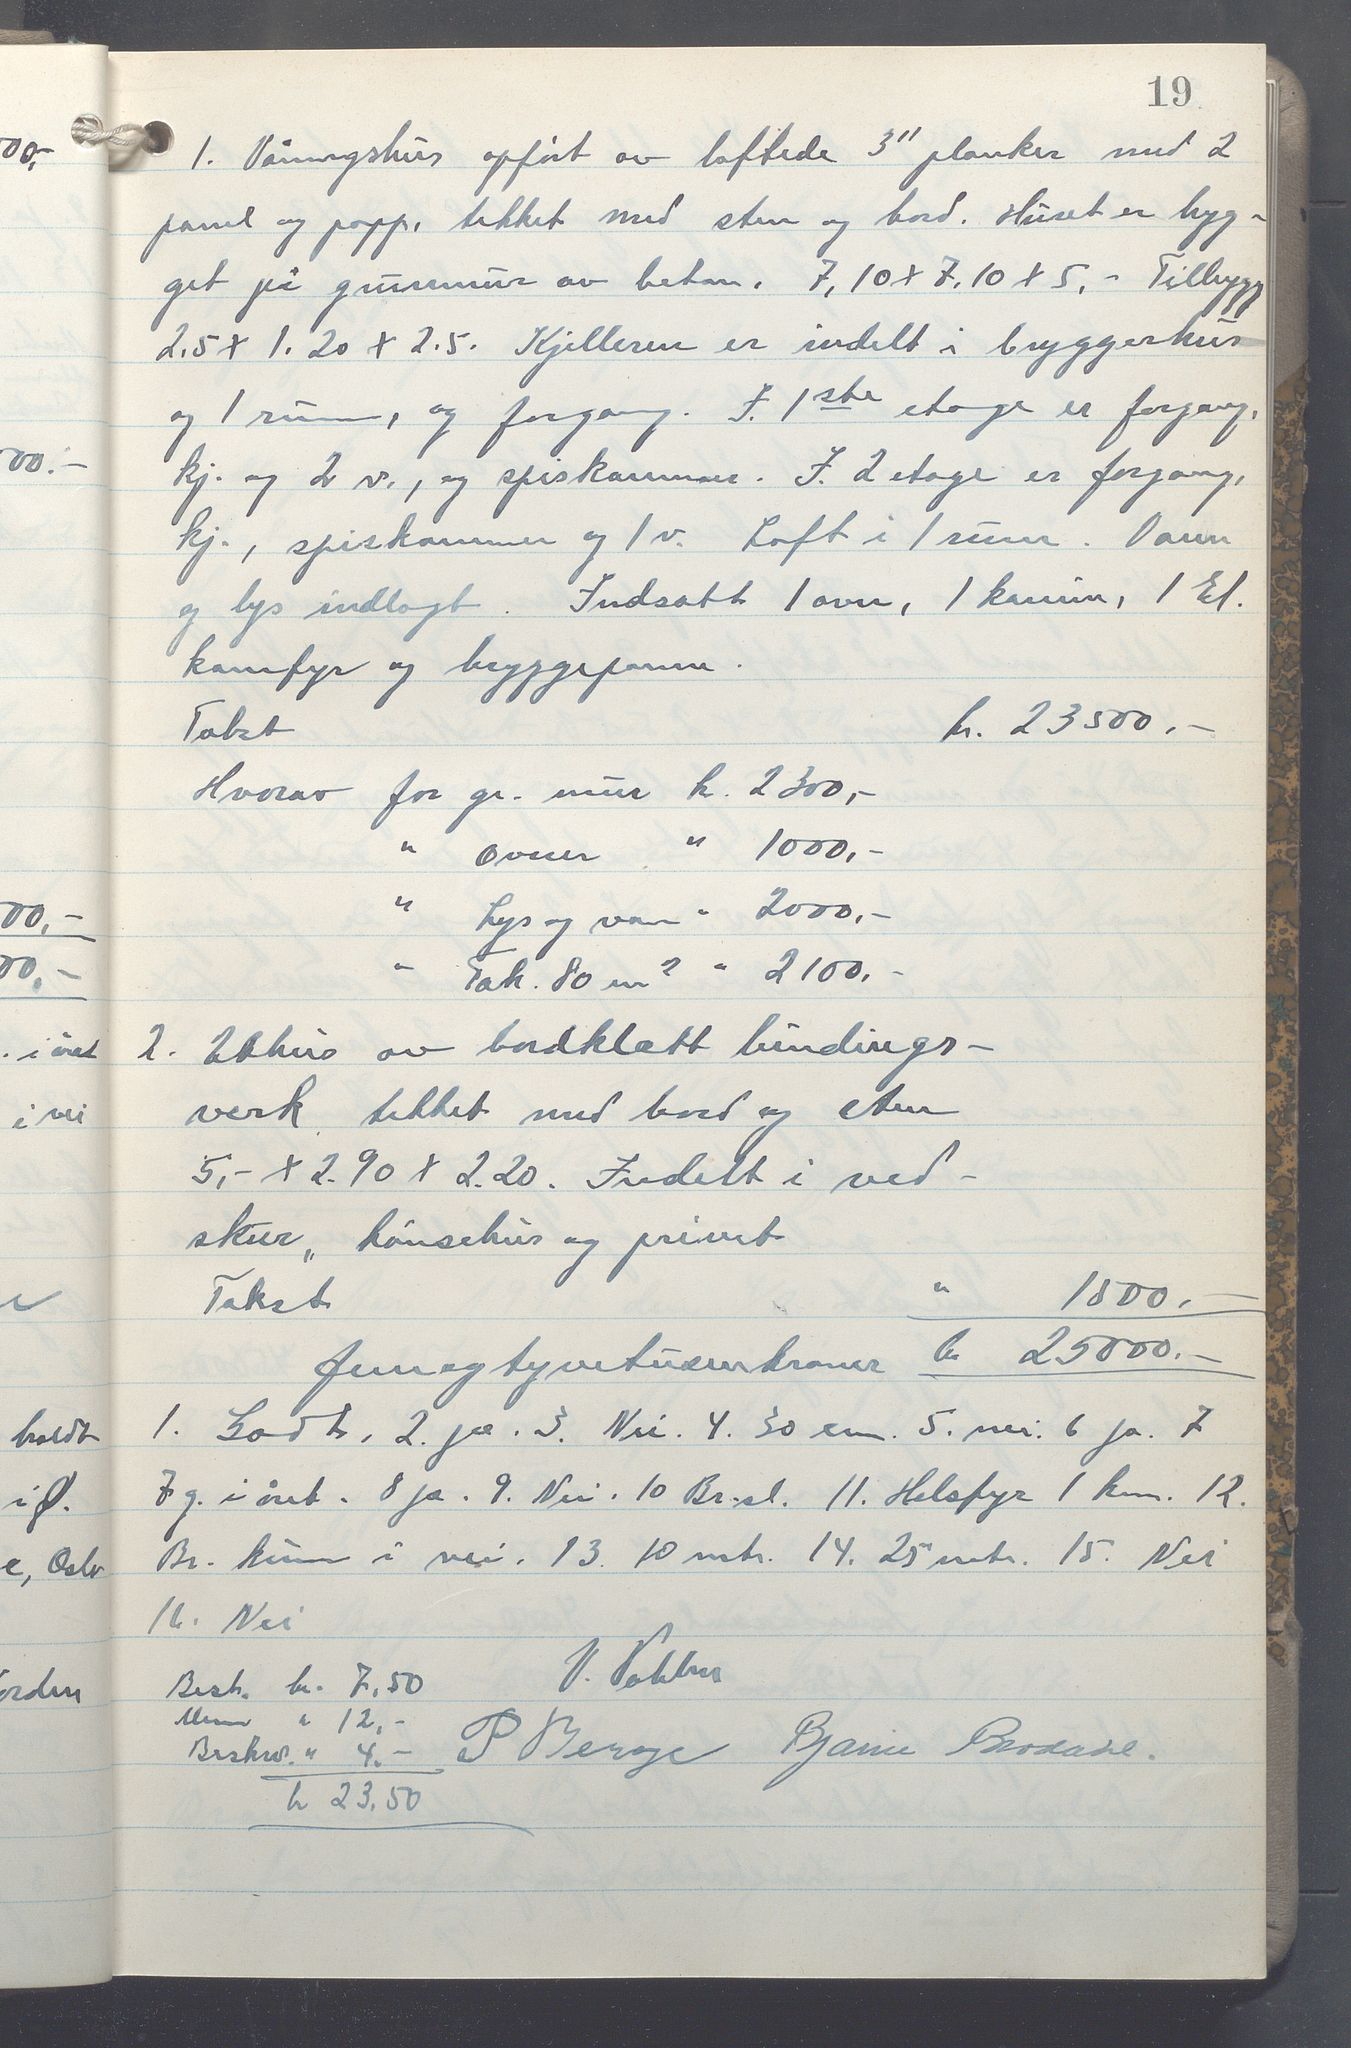 19
1. Våningshus opført av laftede 3" planker med 2
panel og papp, tekket med sten og bord. Huset er byg-
get på grunnmur av beton. 7,10 x 7,10 x 5,- Tilbygg
2.5 x 1.20 x 2.5. Kjelleren er indelt i bryggerhus
og 1 rum, og forgang. I. 1ste etage er forgang,
kj. og 2 v., og spiskammer. I. 2 etage er forgang,
kj., spiskammer og 1 v. Loft i 1 rum. Vann
og lys indlagt. Indsatt 1 ovn, 1 kamin, 1 El.
komfyr og bryggepanne.
Takst kr. 23500.-
Hvorav for gr. mur kr. 2300,-
" ovner " 1000,-
" Lys og van " 2000,-
" Tak. 80 m2 " 2100,-
2. Uthus av bordklætt bindings-
verk, tekket med bord og sten
5,- x 2.90 x 2.20. Indelt i ved-
skur, hönsehus og privet
Takst " 1500.-
femogtyvetusenkroner kr 25000.-
1. Godt. 2. ja. 3. Nei. 4. 30 cm. 5. nei. 6 ja. 7
7 g. i året. 8 ja. 9. Nei. 10 Br.sl. 11. Helsfyr 1 km. 12.
Br. kum i vei. 13. 10 mtr. 14. 25 mtr. 15. Nei
16. Nei
Best. kr. 7,50
" 12,-
Beskriv. " 4.- P Berge Bjarne
kr 23,50
00,-
00.-
00,-
00,-
. i året
i vei
holdt
i Ø.
e, Oslo